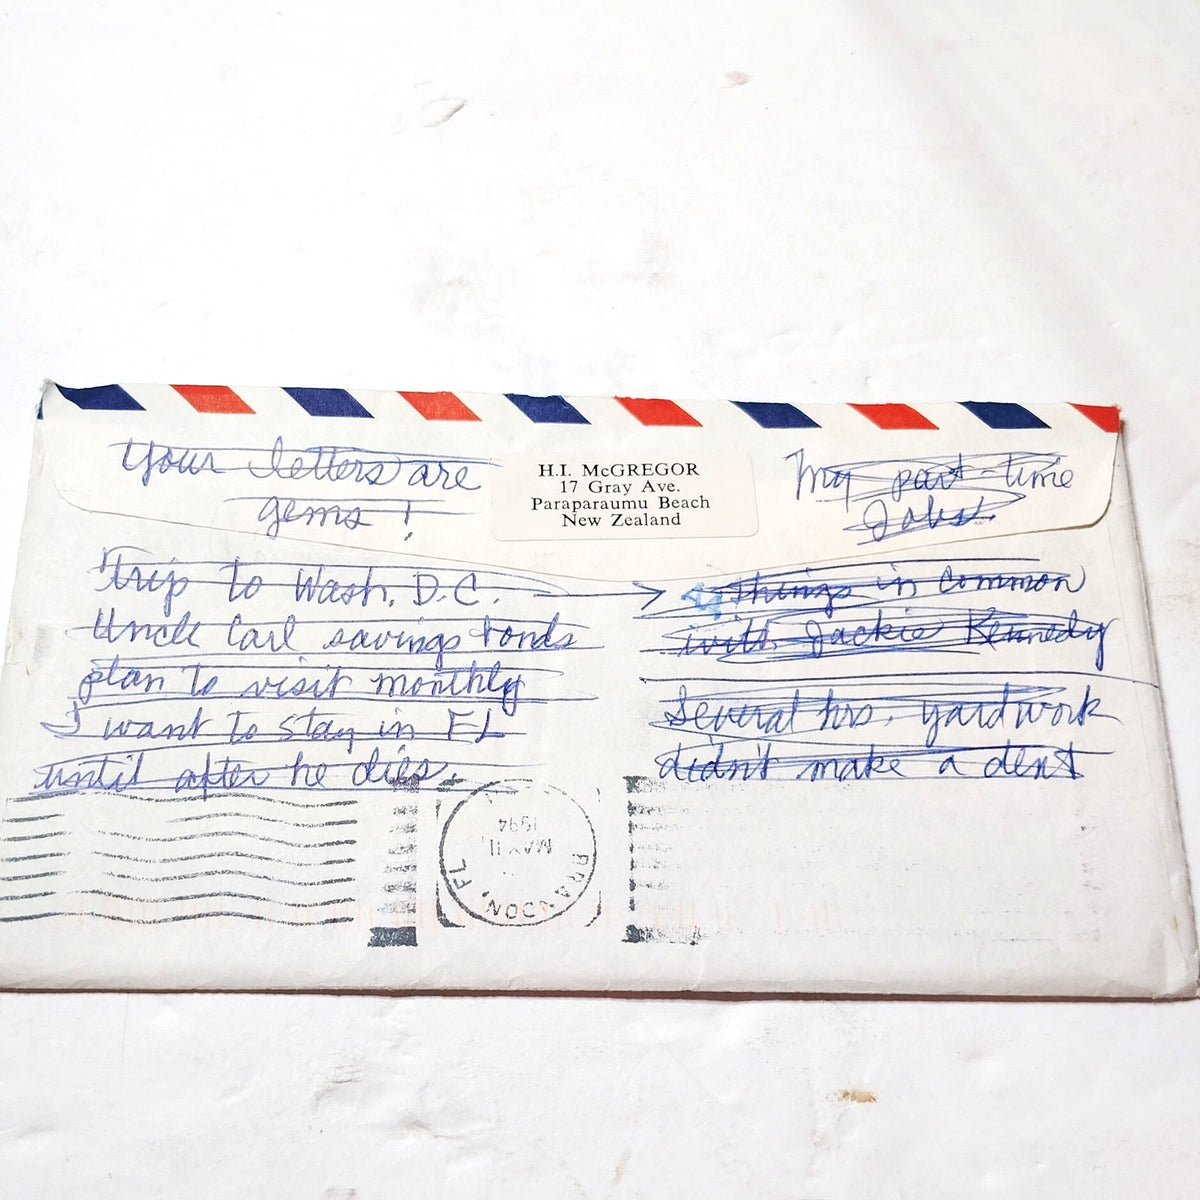 Your letters are
gems!
H.I. McGREGOR
17 Gray Ave.
Paraparaumu Beach
New Zealand
My part-time
Jobs.
Trip to Wash. D.C.
Uncle Carl savings bonds
plan to visit monthly
I want to stay in FL
until after he dies.
Things in common
with Jackie Kennedy
Several hrs. yardwork
didn't make a dent
MAY 11
1994
FL